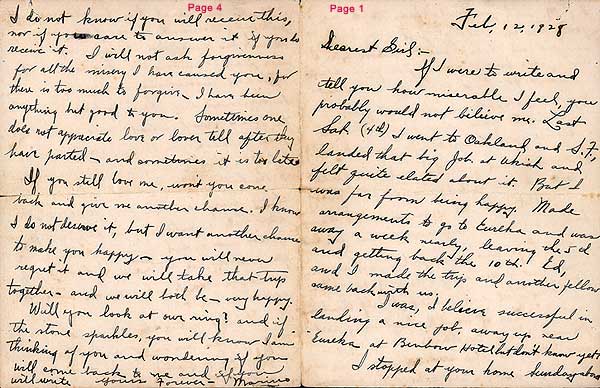 Page 1
Feb, 12, 1928
Dearest Girl:-
If I were to write and
tell you how miserable I feel, you
probably would not bilieve me. Last
Sat. (4th) I went to Oakland and S.F.,
landed that big job at which and
felt quite elated about it. But I
was far from being happy. Made
arrangements to go to Eureka and was
away a week nearly, leaving the 5th
and getting back the 10th. Ed,
and I made the trip and another fellow
came back with us.
I was, I bileive successful in
landing a nice job, away up near
Eureka at Benbow Hotel but don't know yet.
I stopped at your home Sunday about
Page 4
I do not know if you will receive this,
nor if you care to answer it if you do
receive it. I will not ask forgiveness
for all the misery I have caused you, for
there is too much to forgive. I have been
anything but good to you. Sometimes one
does not appreciate love or lover till after they
have parted - and sometimes it is too late
If you still love me, won't you come
back and give me another chance. I know
I do not deserve it, but I want another chance
to make you happy - you will never
regret it and we will take that trip
together - and we will both be - very happy.
Will you look at our ring? and if
the stone sparkles, you will know I am
thinking of you and wondering if you
will come back to me and if you
will write Yours Forever -